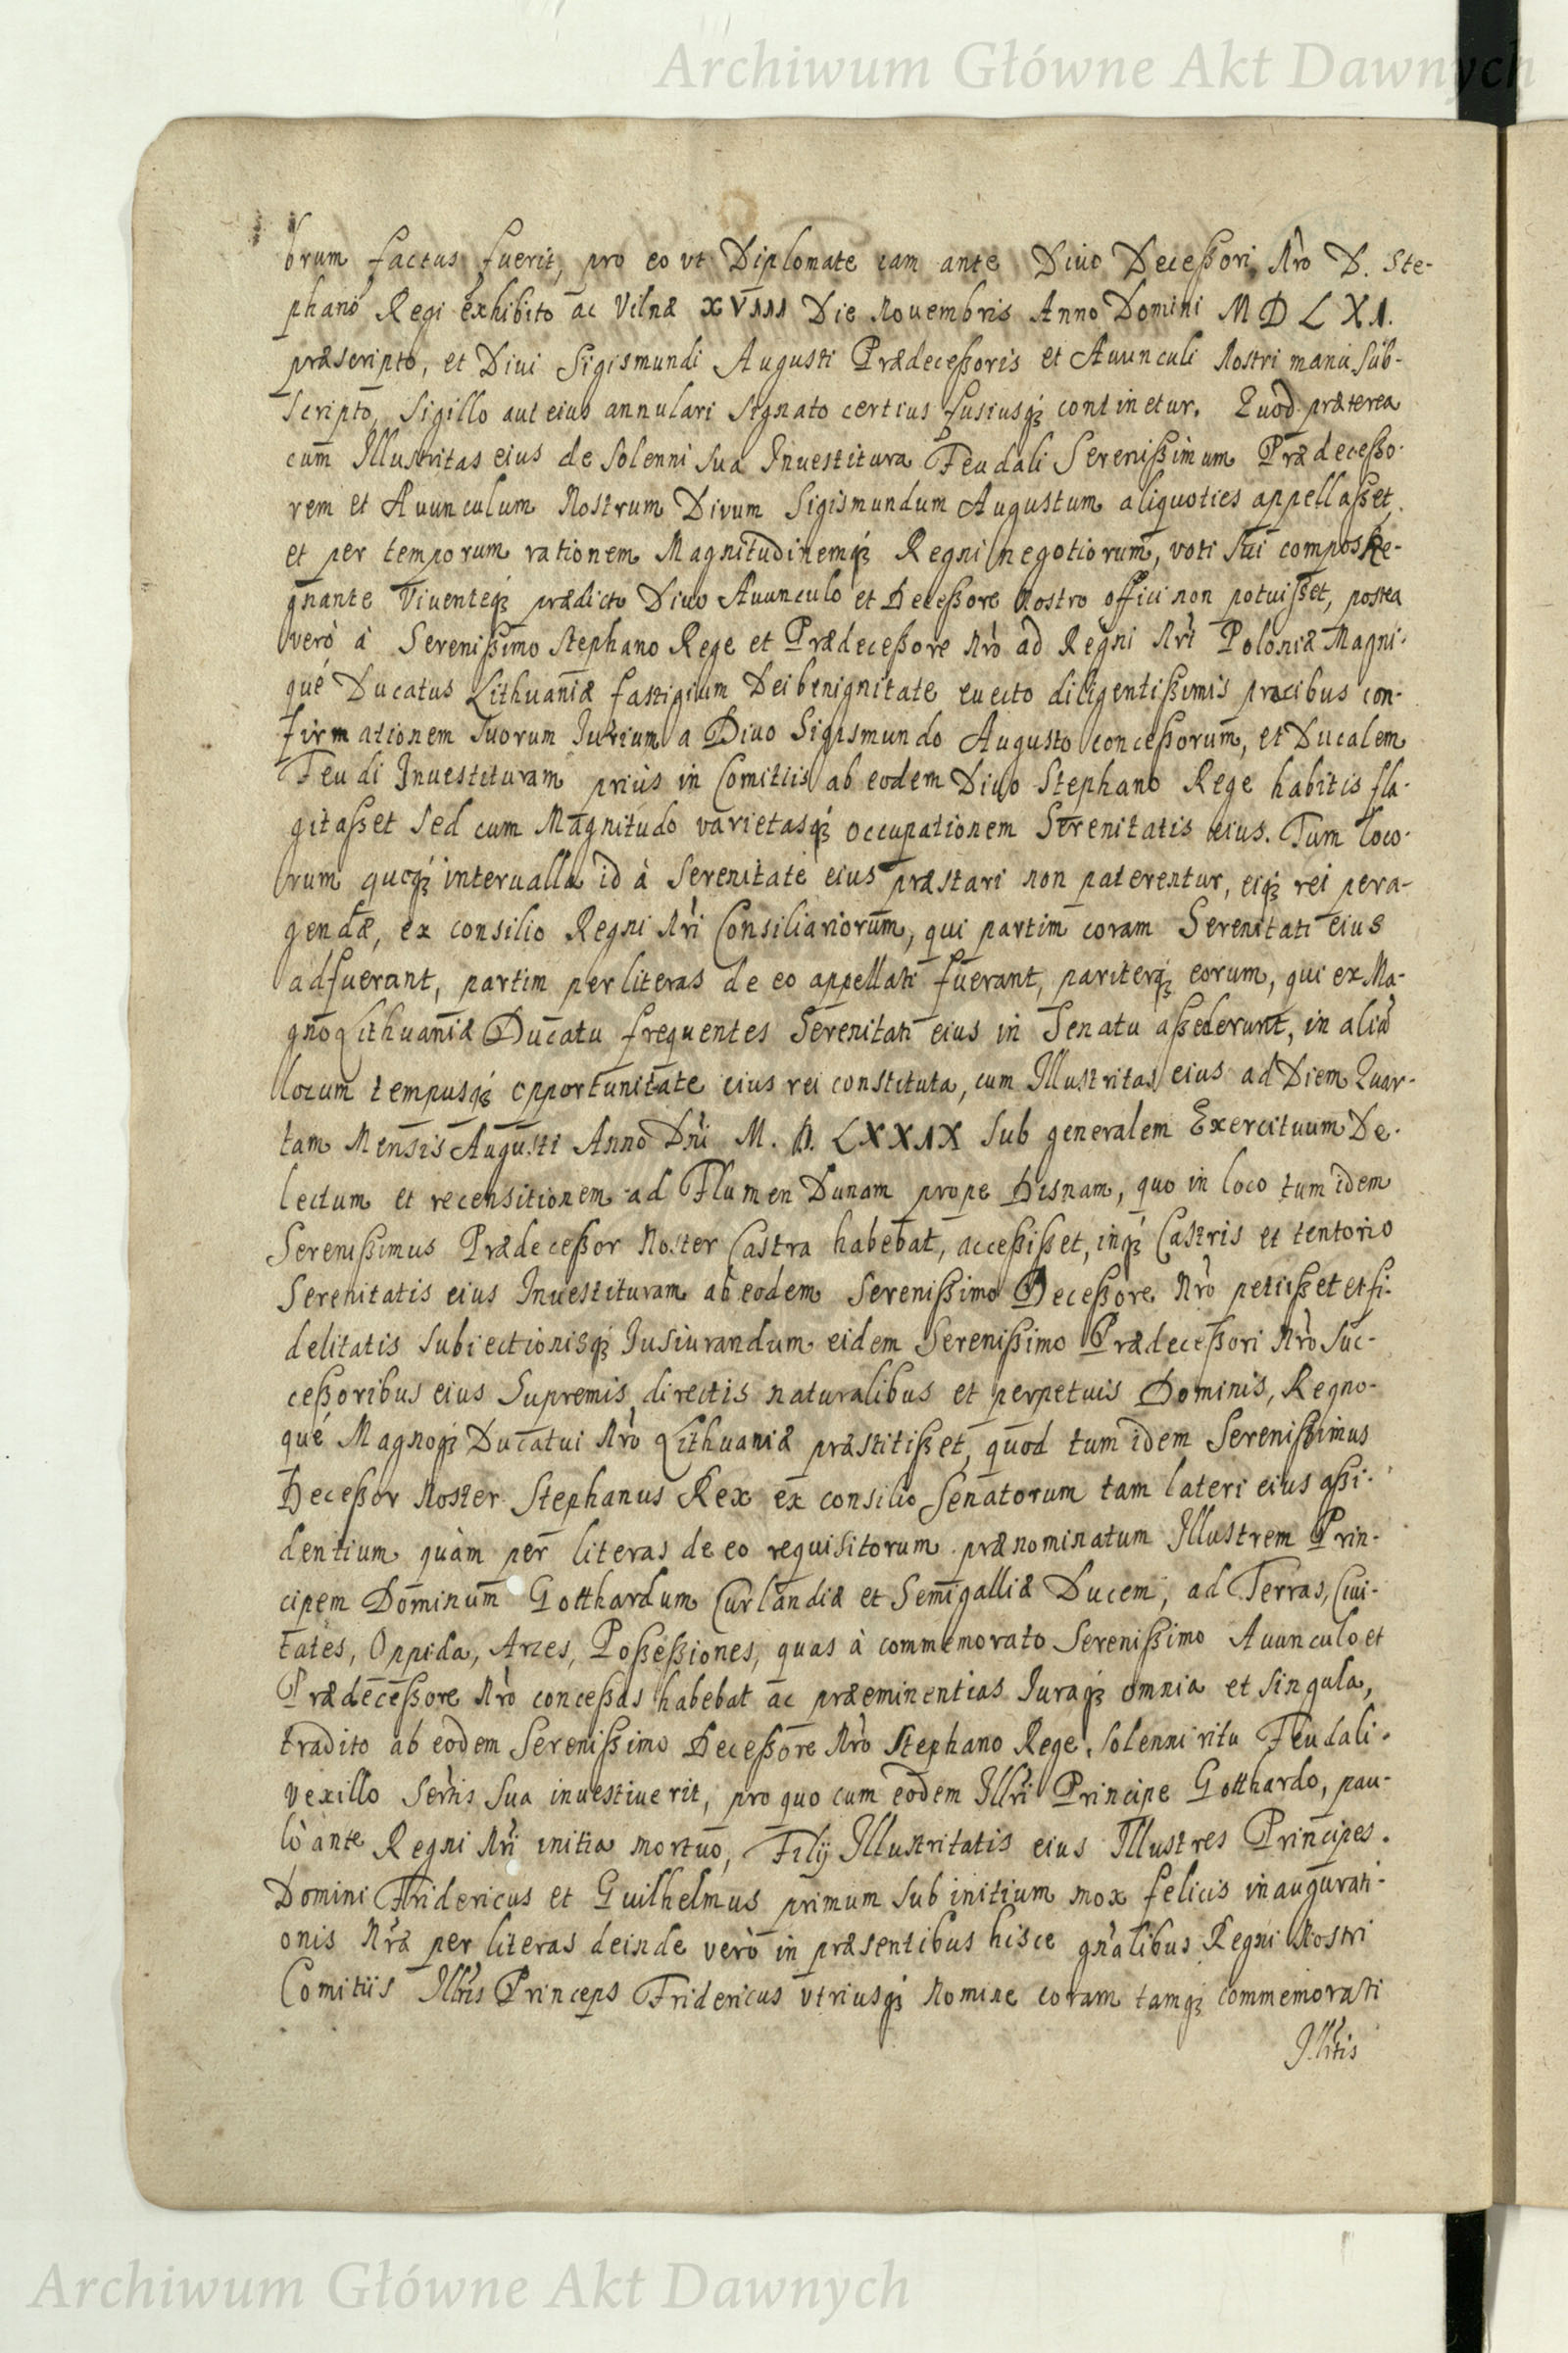 Archiwum Główne Akt Dawnych
brum factus fuerit, pro eo ut Diplomate iam ante Diuo Decessori Nro D. Ste-
phano Regi exhibito ac Vilnæ XVIII Die Nouembris Anno Domini MDLXI.
præscripto, et Diui Sigismundi Augusti Prædecessoris et Auunculi Nostri manu sub-
scripto, Sigillo aut eius annulari signato certius fusiusq₃ continetur. Quod præterea
cum Illustritas eius de solenni sua Inuestitura Feudali Serenissimum Prædecesso-
rem et Auunculum Nostrum Divum Sigismundum Augustum aliquoties appellasset,
et per temporum rationem Magnitudinemq₃ Regni negotiorum, voti sui compos Re-
gnante Viuenteq₃ prædicto Diuo Auunculo et Decessore Nostro effici non potuisset, postea
verò à Serenissimo Stephano Rege et Prædecessore Nro ad Regni Nri Poloniæ Magni-
qué Ducatus Lithuaniæ fastigium Dei benignitate euecto diligentissimis præcibus con-
firmationem suorum Iurium a Diuo Sigismundo Augusto concessorum, et Ducalem
Feudi Inuestituram priùs in Comitiis ab eodem Diuo Stephano Rege habitis fla-
gitasset sed cum Magnitudo varietasq₃ occupationem Serenitatis eius. Tum loco-
rum quoq₃ interualla id à Serenitate eius præstari non paterentur, eiq₃ rei pera-
gendæ, ex consilio Regni Nri Consiliariorum, qui partim coram Serenitati eius
adfuerant, partim per literas de eo appellati fuerant, pariterq₃ eorum, qui ex Ma-
gno Lithuaniæ Ducatu frequentes Serenitati eius in Senatu assederunt, in aliâ
locum tempusq₃ opportunitate eius rei constituta, cum Illustritas eius ad Diem Quar-
tam Mensis Augusti Anno Dni M. D. LXXIX sub generalem Exercituum De-
lectum et recensitionem ad Flumen Dunam prope Disnam, quo in loco tum idem
Serenissimus Prædecessor Noster Castra habebat, accessisset, inq₃ Castris et tentorio
Serenitatis eius Inuestituram ab eodem Serenissimo Decessore Nro petiisset et fi-
delitatis subiectionisq₃ Iusiurandum eidem Serenissimo Prædecessori Nro suc-
cessoribus eius Supremis, directis naturalibus et perpetuis Dominis, Regno-
qué Magnoq₃ Ducatui Nro Lithuaniæ præstitisset, quod tum idem Serenissimus
Decessor Noster Stephanus Rex ex consilio Senatorum tam lateri eius assi-
dentium quàm per literas de eo requisitorum prænominatum Illustrem Prin-
cipem Dominum Gotthardum Curlandiæ et Semigalliæ Ducem, ad Terras, Ciui-
tates, Oppida, Arces, Possessiones, quas à commemorato Serenissimo Auunculo et
Prædecessore Nro concessas habebat ac præeminentias Iuraq₃ omnia et singula,
tradito ab eodem Serenissimo Decessore Nro Stephano Rege, solenni ritu Feudali
vexillo Sertis sua inuestiuerit, pro quo cum eodem Illri Principe Gotthardo, pau-
lò ante Regni Nri initia mortuo, Filij Illustritatis eius Illustres Principes.
Domini Fridericus et Guilhelmus primum sub initium mox felicis inaugurati-
onis Nræ per literas deinde verò in præsentibus hisce gnalibus Regni Nostri
Comitiis Illris Princeps Fridericus vtriusq₃ Nomine coram tamq₃ commemorati
Illtis
Archiwum Główne Akt Dawnych